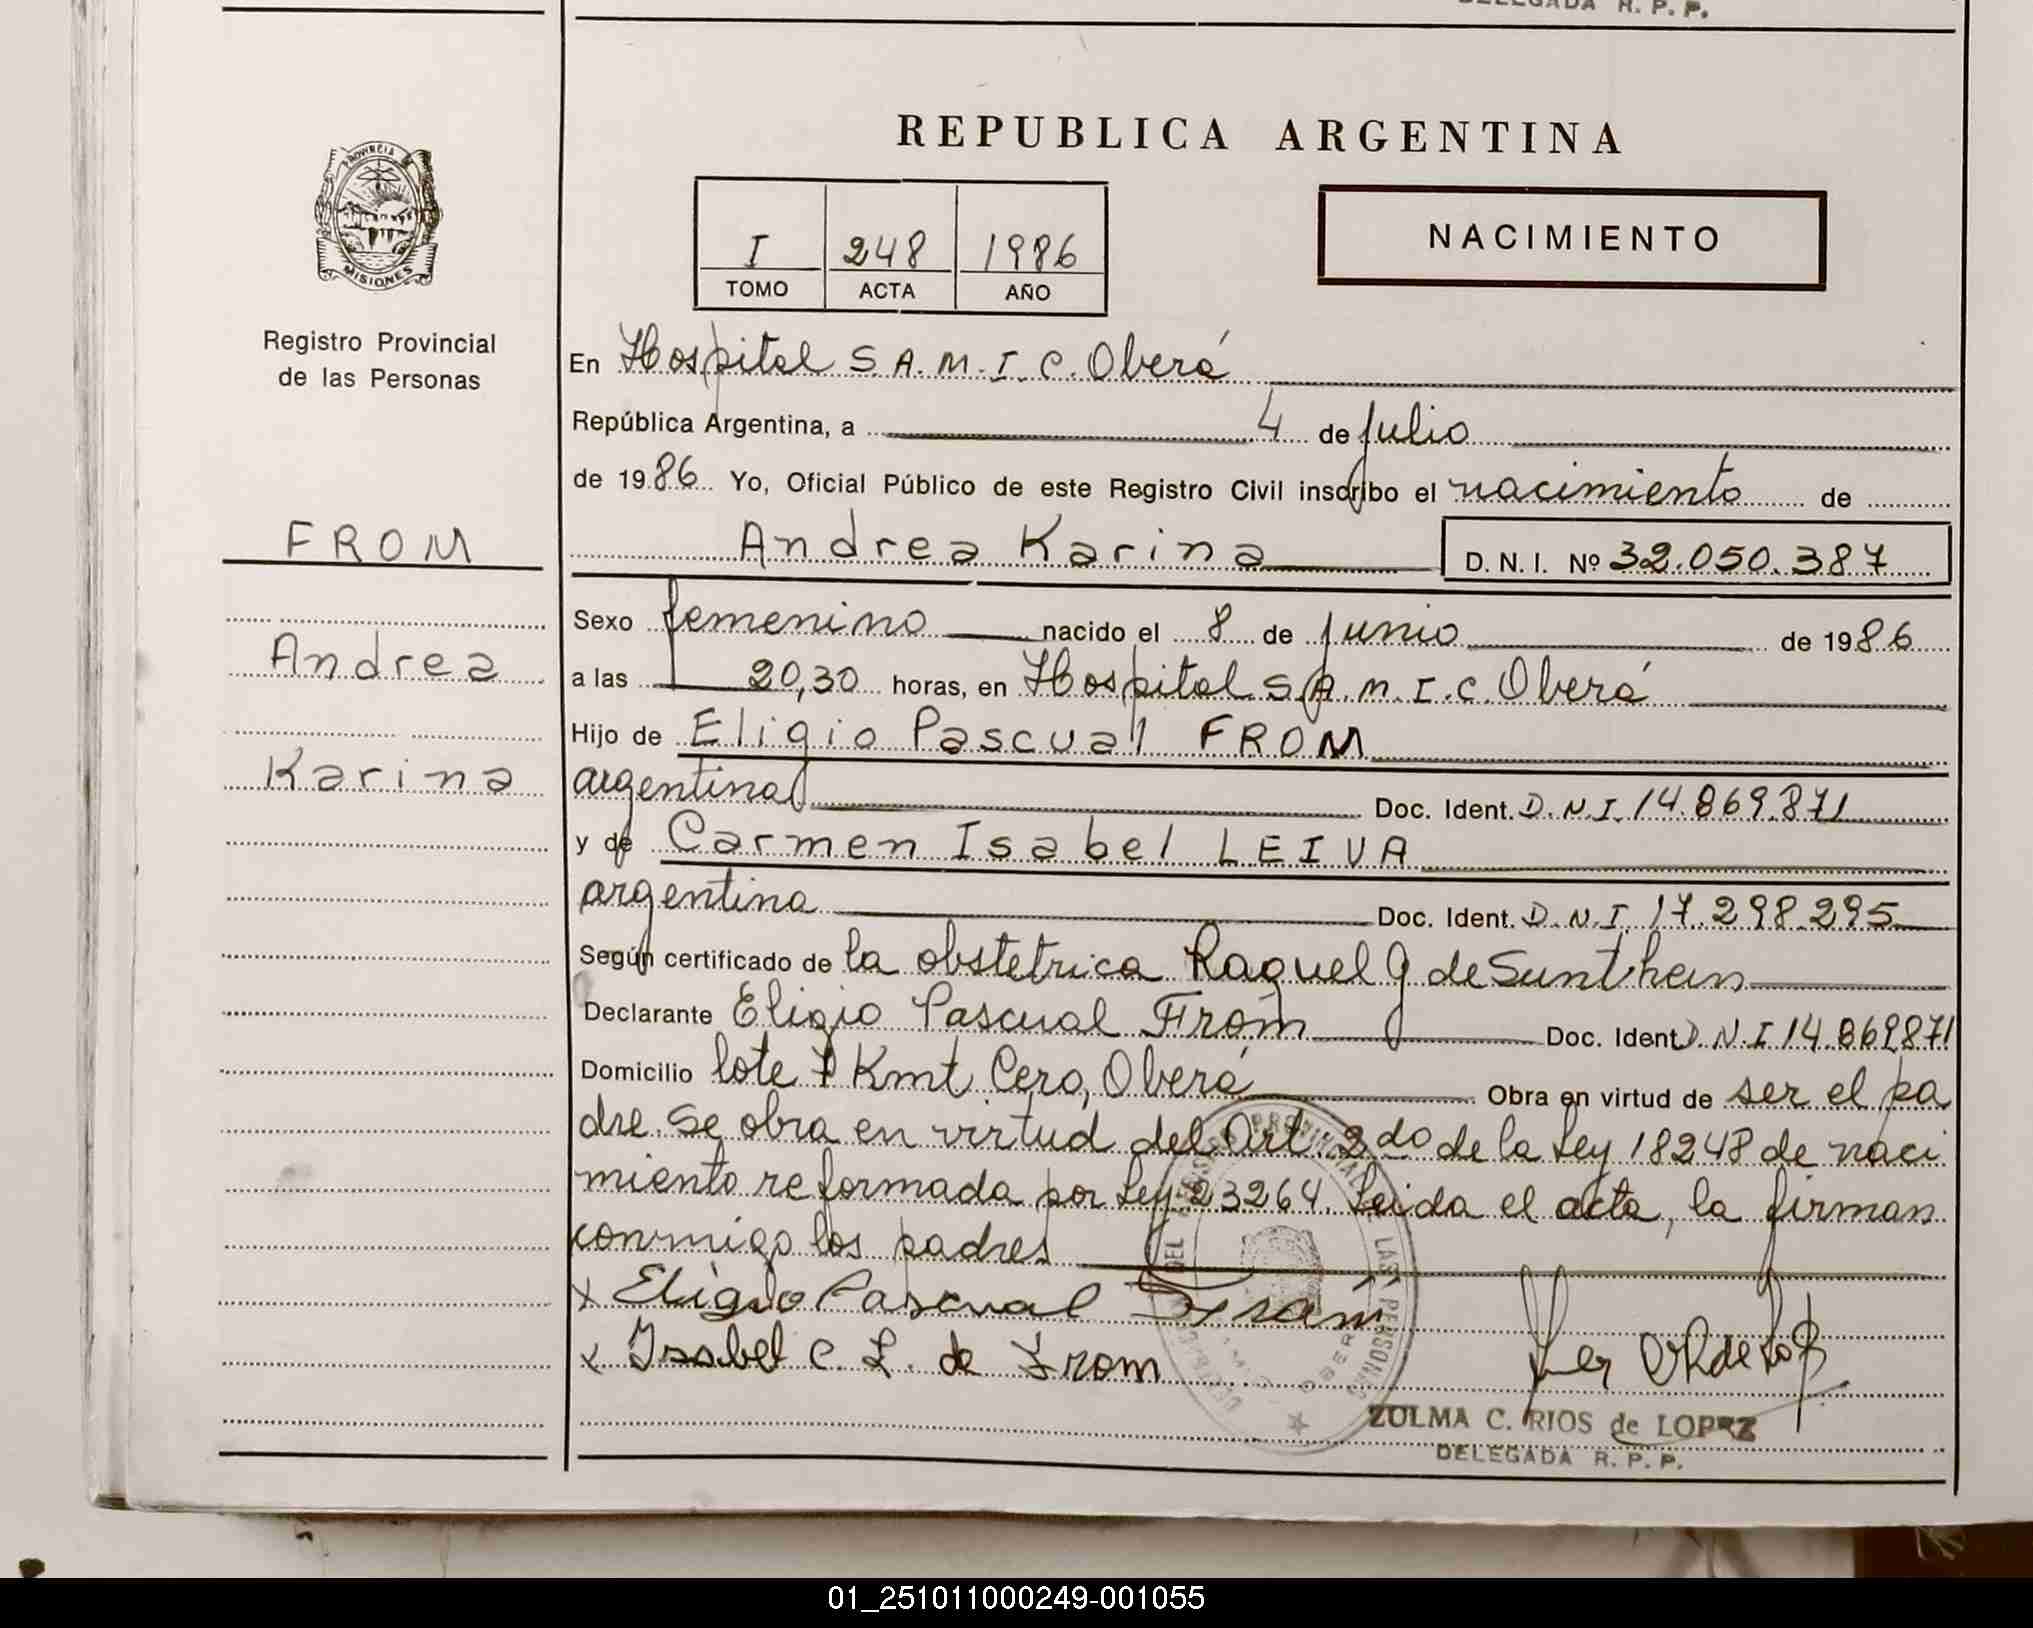 DELEGADA R. P. P.
REPUBLICA ARGENTINA
PROVINCIA DE
MISIONES
Registro Provincial
de las Personas
I 248 1986
TOMO ACTA AÑO
NACIMIENTO
En Hospital S.A.M.I.C. Oberá
República Argentina, a 4 de julio
de 1986 Yo, Oficial Público de este Registro Civil inscribo el nacimiento de
FROM
Andrea Karina D. N. I. Nº 32.050.387
Sexo femenino nacido el 8 de junio de 1986
Andrea
a las 20,30 horas, en Hospital S.A.M.I.C. Oberá
Hijo de Eligio Pascual FROM
Karina
argentina Doc. Ident. D.N.I. 14.869.871
y de Carmen Isabel LEIVA
argentina Doc. Ident. D.N.I. 17.298.295
Según certificado de la obstetrica Raquel G de Sunthein
Declarante Eligio Pascual From Doc. Ident. D.N.I 14.869871
Domicilio lote 7 Kmt Cero, Oberá Obra en virtud de ser el pa
dre se obra en virtud del Art. 2do de la Ley 18248 de naci
miento reformada por Ley 23264. Leida el acta, la firman
conmigo los padres
x Eligio Pascual From
x Isabel C. L. de From
ZULMA C. RIOS de LOPEZ
DELEGADA R. P. P.
01_251011000249-001055